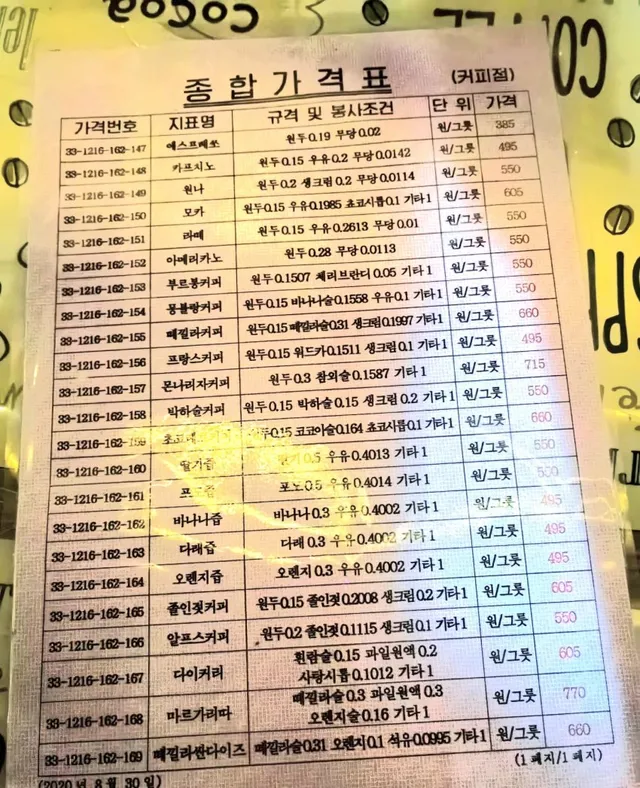 cocoa
종합가격표
(커피점)
가격번호 지표명 규격 및 봉사조건 단위 가격
33-1216-162-147 에스프레쏘 원두0.19 무당0.02 원/그릇 385
33-1216-162-148 카프치노 원두0.15 우유0.2 무당0.0142 원/그릇 495
33-1216-162-149 윈나 원두0.2 생크림0.2 무당0.0114 원/그릇 550
33-1216-162-150 모카 원두0.15 우유0.1985 쵸코시롭0.1 기타1 원/그릇 605
33-1216-162-151 라떼 원두0.15 우유0.2613 무당0.01 원/그릇 550
33-1216-162-152 아메리카노 원두0.28 무당0.0113 원/그릇 550
33-1216-162-153 부르봉커피 원두0.1507 체리브란디0.05 기타1 원/그릇 550
33-1216-162-154 몽블랑커피 원두0.15 바나나술0.1558 우유0.1 기타1 원/그릇 550
33-1216-162-155 떼낄라커피 원두0.15 떼낄라술0.31 생크림0.1997 기타1 원/그릇 660
33-1216-162-156 프랑스커피 원두0.15 워드카0.1511 생크림0.1 기타1 원/그릇 495
33-1216-162-157 몬나리자커피 원두0.3 참외술0.1587 기타1 원/그릇 715
33-1216-162-158 박하술커피 원두0.15 박하술0.15 생크림0.2 기타1 원/그릇 550
33-1216-162-159 원두0.15 코코아술0.164 쵸코시롭0.1 기타1 원/그릇 660
33-1216-162-160 딸기즙 딸기0.5 우유0.4013 기타1 원/그릇 550
33-1216-162-161 포도즙 포도0.5 우유0.4014 기타1 원/그릇
33-1216-162-162 바나나즙 바나나0.3 우유0.4002 기타1 원/그릇 495
33-1216-162-163 다래즙 다래0.3 우유0.4002 기타1 원/그릇 495
33-1216-162-164 오렌지즙 오렌지0.3 우유0.4002 기타1 원/그릇 495
33-1216-162-165 졸인젖커피 원두0.15 졸인젖0.2008 생크림0.2 기타1 원/그릇 605
33-1216-162-166 알프스커피 원두0.2 졸인젖0.1115 생크림0.1 기타1 원/그릇 550
33-1216-162-167 다이커리 흰람술0.15 파일원액0.2 원/그릇 605
사탕시롭0.1012 기타1
33-1216-162-168 마르가리따 떼낄라술0.3 파일원액0.3 원/그릇 770
오렌지술0.16 기타1
33-1216-162-169 떼낄라싼다이즈 떼낄라술0.31 오렌지0.1 석유0.0995 기타1 원/그릇 660
(2020년 8월 30일)
(1페지/1페지)